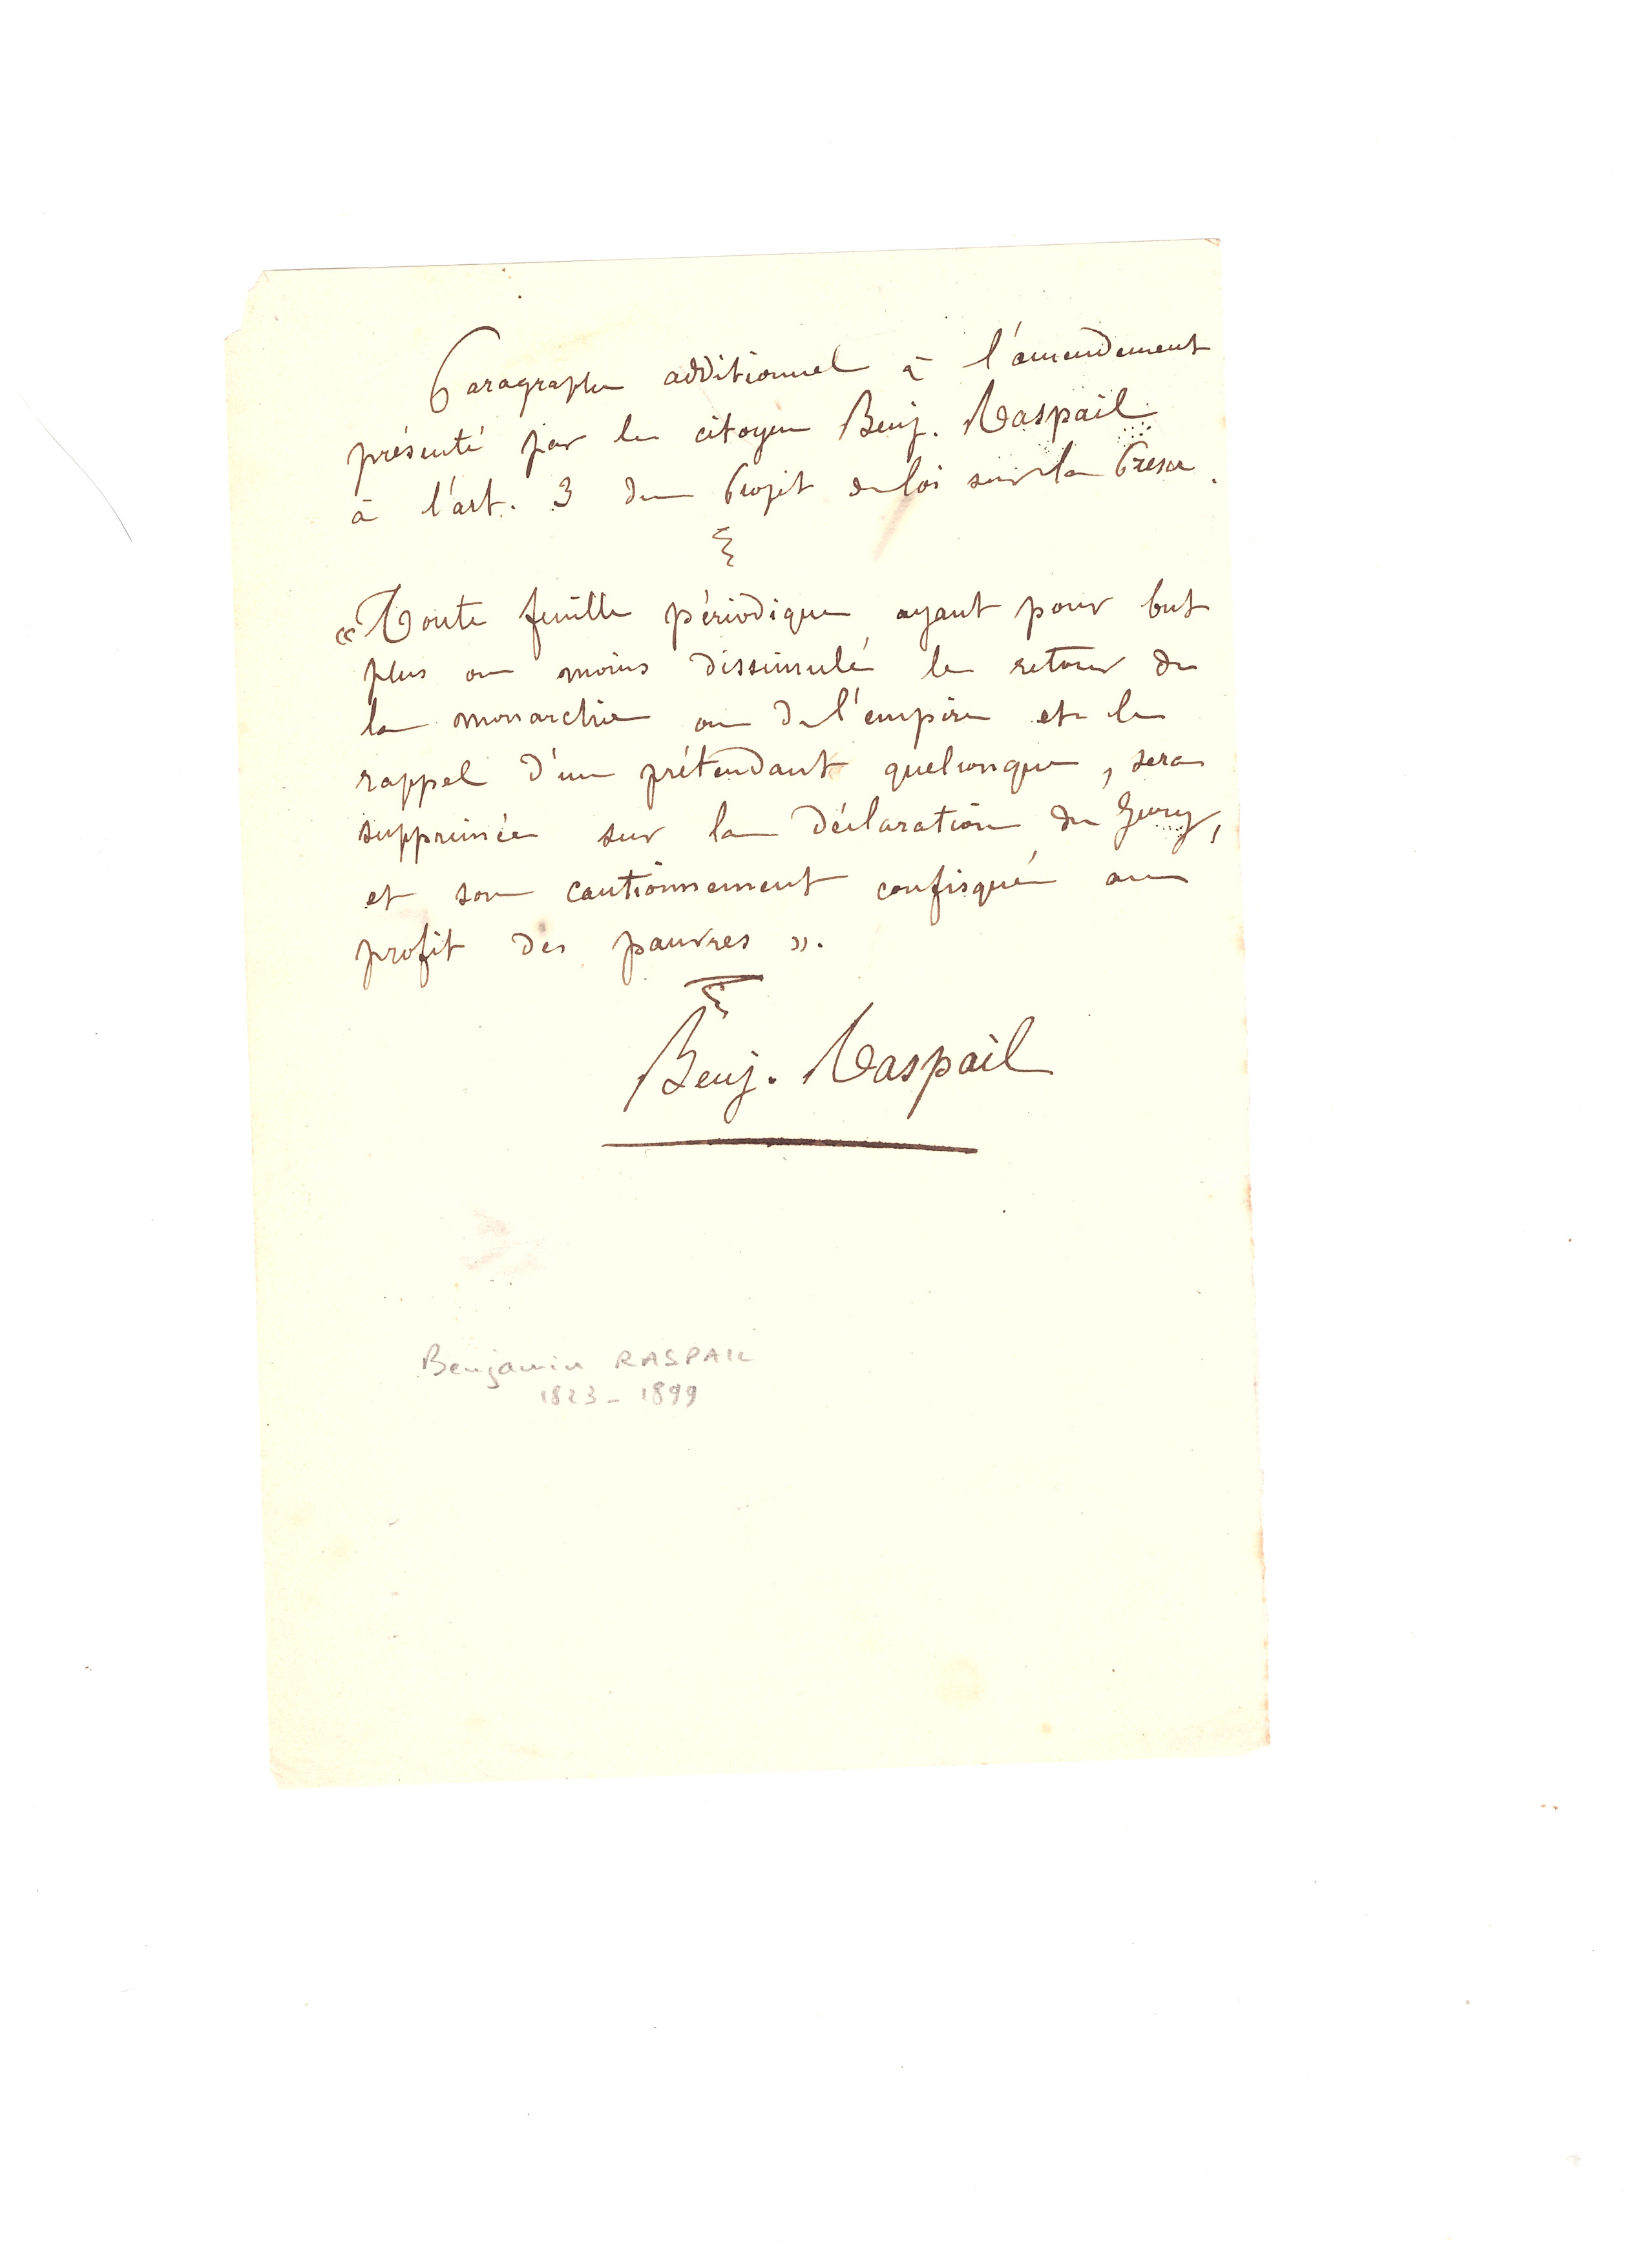 Paragraphe additionnel à l'amendement
présenté par le citoyen Benj. Raspail
à l'art. 3 du Projet de loi sur la Presse.
« Toute feuille périodique ayant pour but
plus ou moins dissimulé le retour de
la monarchie ou de l'empire et le
rappel d'un prétendant quelconque, sera
supprimée sur la déclaration du Jury,
et son cautionnement confisqué au
profit des pauvres ».
Benj. Raspail
Benjamin RASPAIL
1823 - 1899